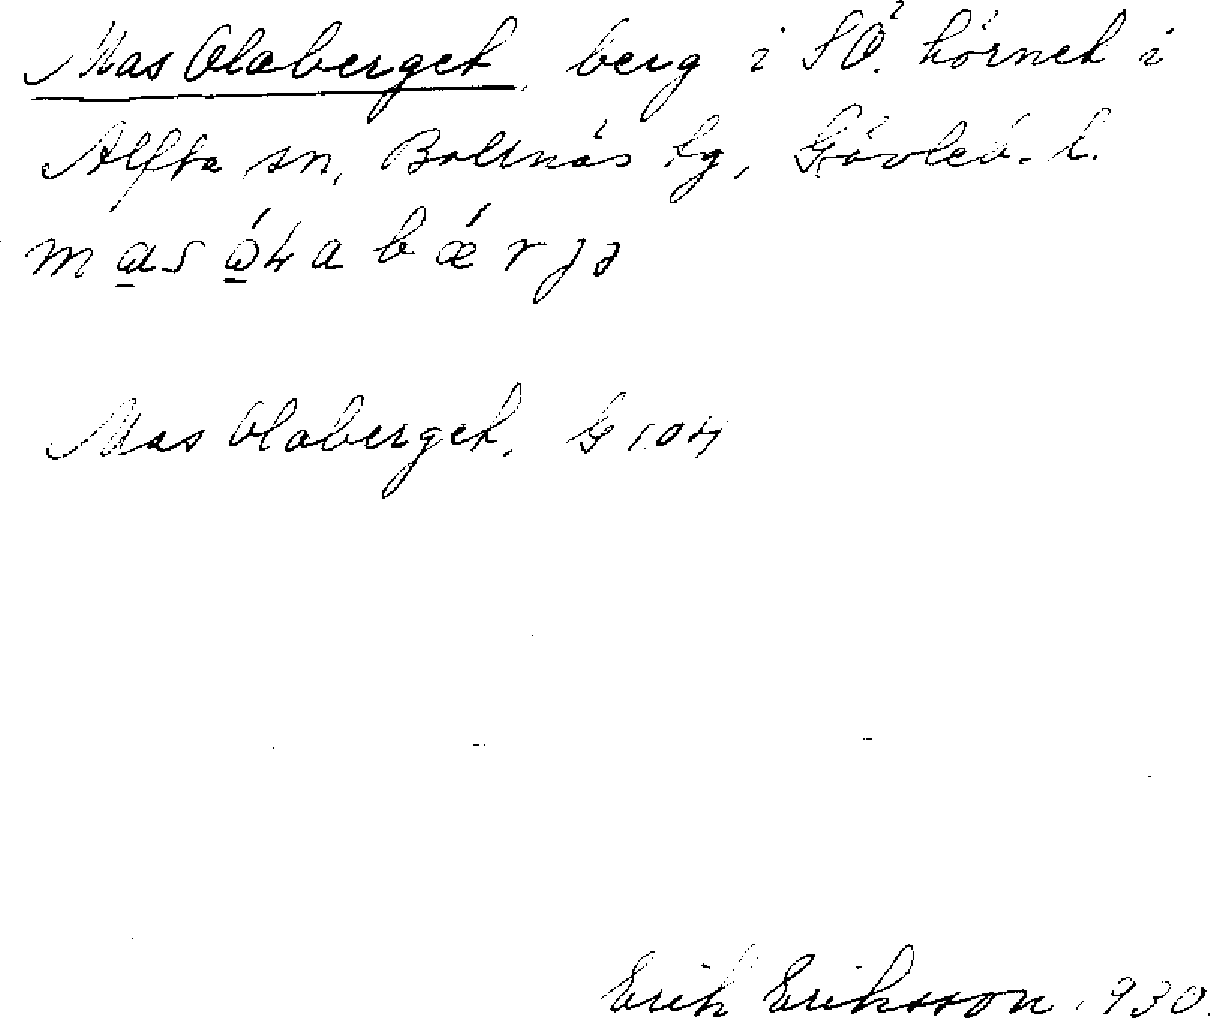 Mas Olaberget, berg i SÖ. hörnet i
Alfta sn, Bollnäs tg, Gävleb. l.
Mas Olaberget. G 104
Erik Eriksson 1930.